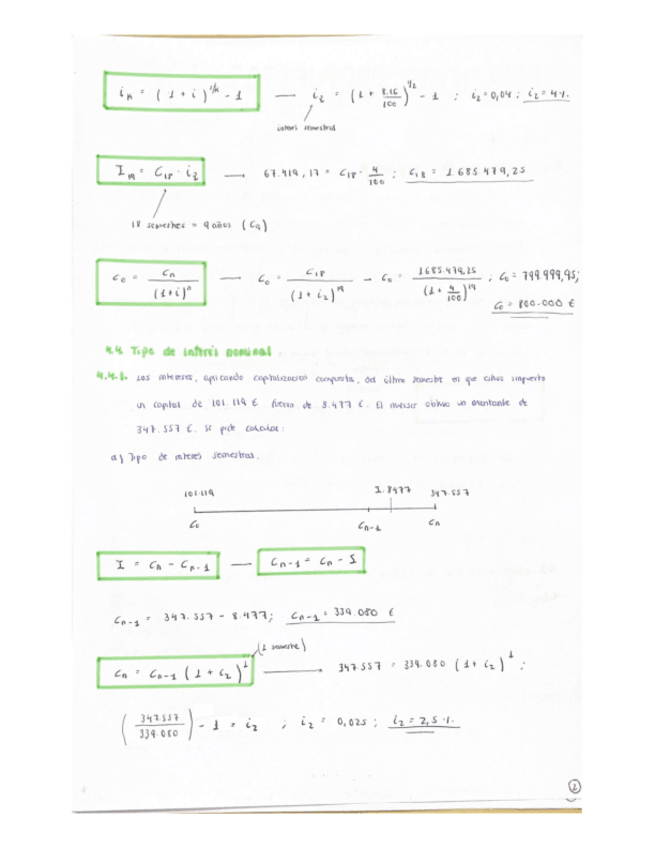 i_k = (1 + i)^1/k - 1 — i_2 = (1 + 8.16/100)^1/2 - 1 ; i_2 = 0,04 ; i_2 = 4%.
interés semestral
I_19 = C_18 · i_2 — 67.419,17 = C_18 · 4/100 ; C_18 = 1.685.479,25
18 semestres = 9 años (C_9)
C_0 = C_n/(1+i)^n — C_0 = C_18/(1 + i_2)^19 - C_0 = 1685.479,25/(1 + 4/100)^19 ; C_0 = 799.999,95;
C_0 = 800.000 €
4.4 Tipo de interés nominal.
4.4.1. Los intereses, aplicando capitalización compuesta, del último semestre en que estuvo impuesto
un capital de 101.119 € fueron de 8.477 €. El inversor obtuvo un montante de
347.557 €. Se pide calcular:
a) Tipo de interés semestral.
101.119 I. 8477 347.557
C_0 C_n-1 C_n
I = C_n - C_n-1 — C_n-1 = C_n - I
C_n-1 = 347.557 - 8.477; C_n-1 = 339.080 €
(1 semestre)
C_n = C_n-1 (1 + i_2)^1 — 347.557 = 339.080 (1 + i_2)^1 ;
(347.557/339.080) - 1 = i_2 ; i_2 = 0,025 ; i_2 = 2,5%.